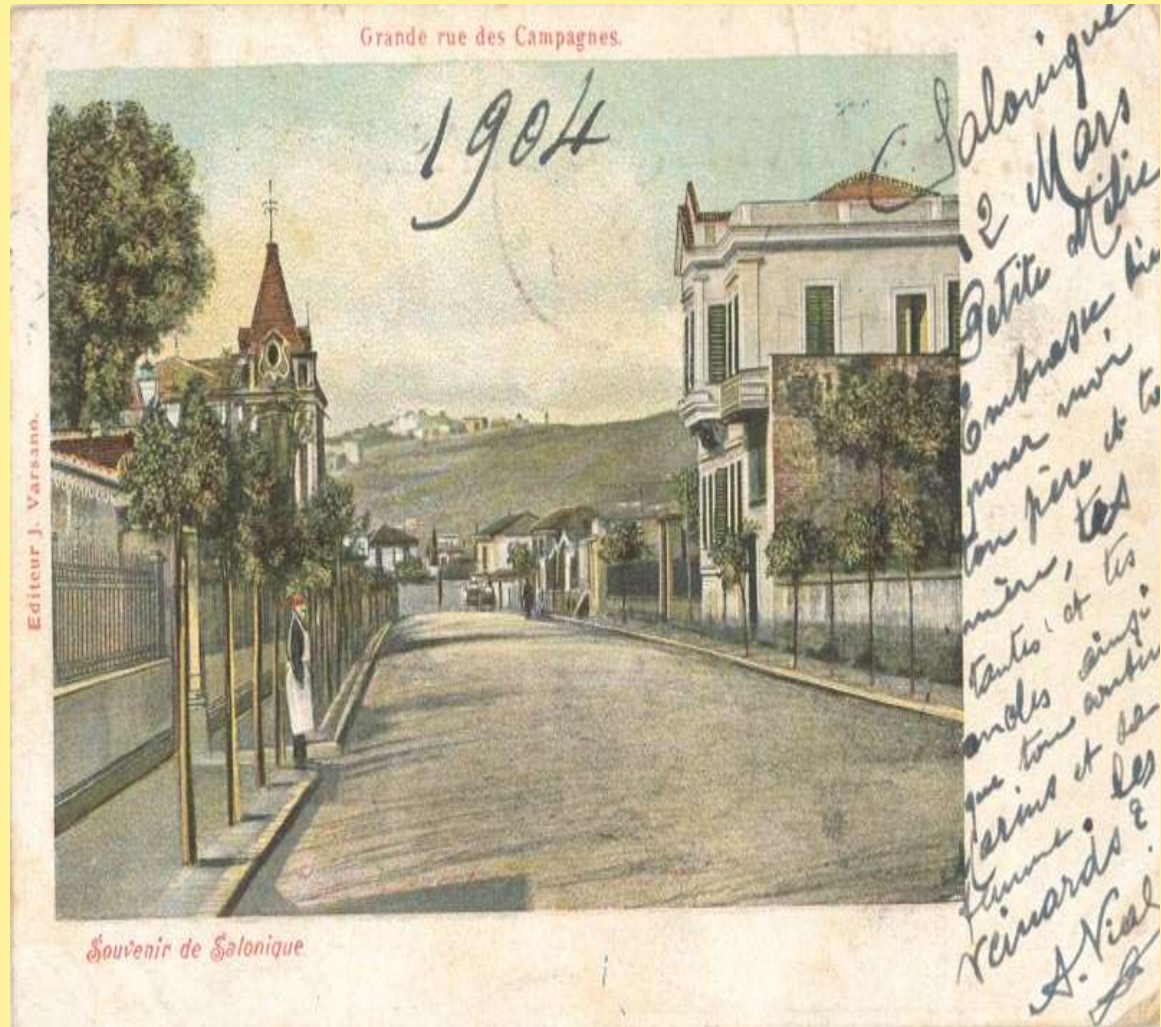 Grande rue des Campagnes.
1904
Editeur J. Varsano.
Souvenir de Salonique
Salonique
2 Mars
Petite
Embrasse
pour moi
ton père et ta
mère, tes
tantes et tes
oncles ainsi
que ton
et sa
femme. Les
A. Vial